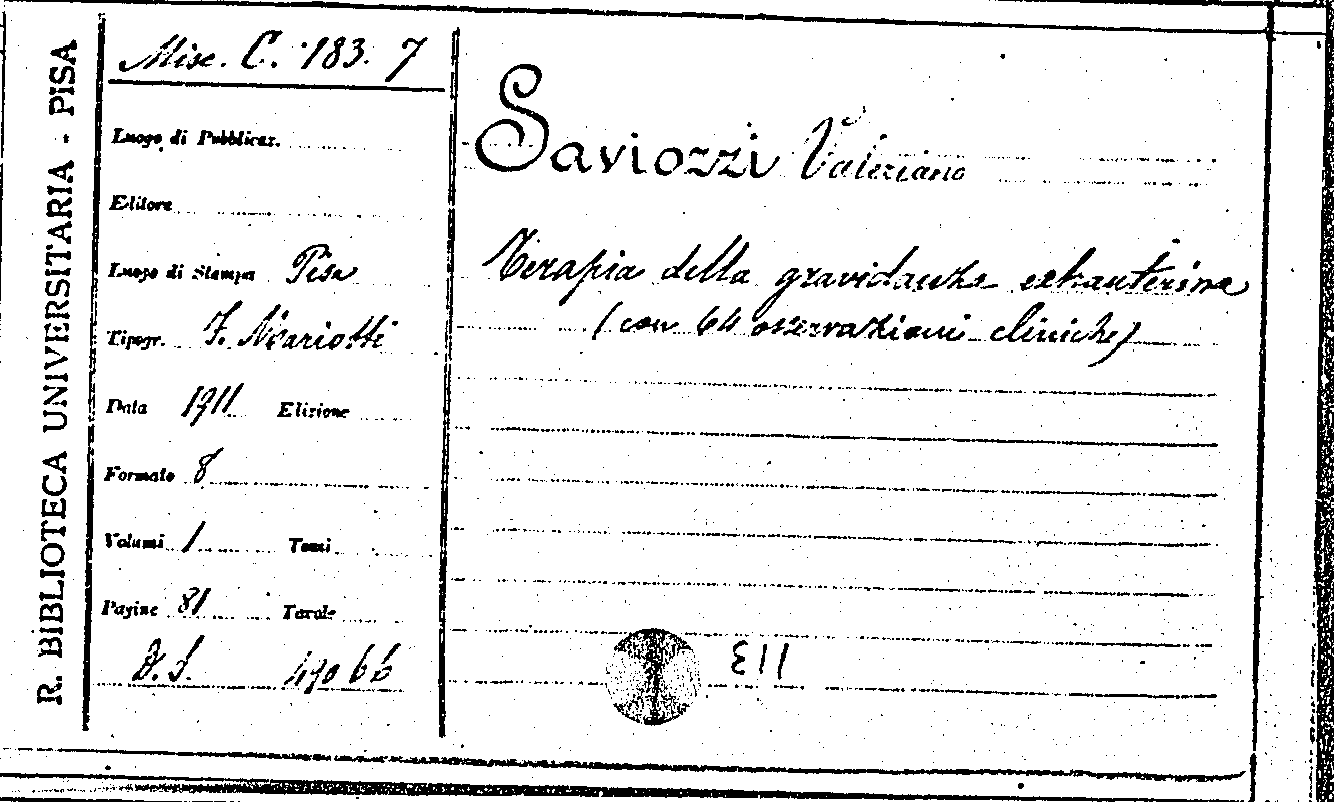 R. BIBLIOTECA UNIVERSITARIA - PISA
Misc. C. 183. 7
Luogo di Pubblicaz.
Editore
Luogo di Stampa Pisa
Tipogr. F. Mariotti
Data 1911 Edizione
Formato 8
Volumi 1 Tomi
Pagine 81 Tavole
D. S. 49066
Saviozzi Valeriano
Terapia della gravidanza extrauterina
(con 64 osservazioni cliniche)
113